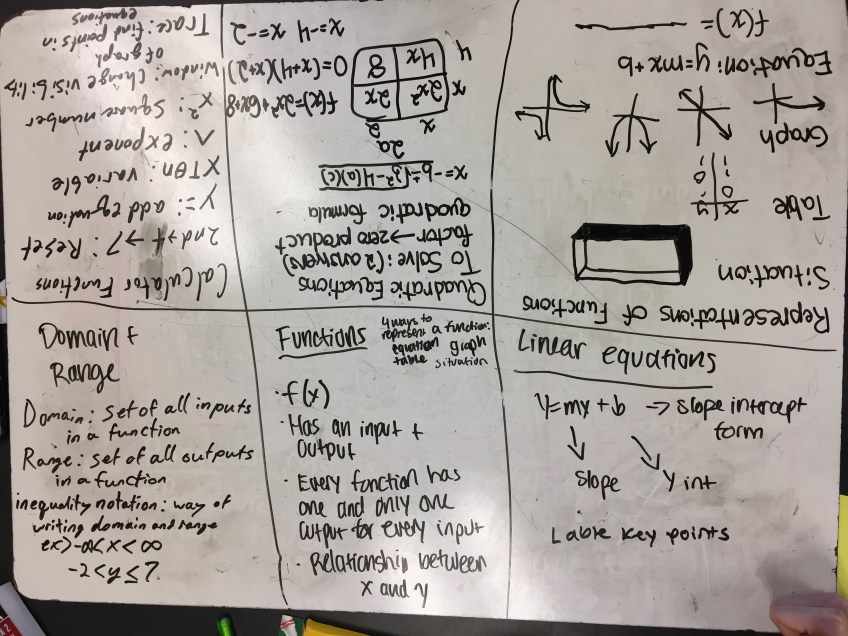 Domain +
Range
Domain: set of all inputs
in a function
Range: set of all outputs
in a function
inequality notation: way of
writing domain and range
ex) -∞<x<∞
-2<y≤7
Functions
4 ways to
represent a function:
equation graph
table situation
·f(x)
·Has an input +
output
·Every function has
one and only one
output for every input
·Relationship between
x and y
Linear equations
y=mx+b → slope intercept
form
slope y int
Lable key points
Representations of Functions
Situation
Table
x|y
Graph
Equation: y=mx+b
f(x)=
Quadratic Equations
To Solve: (2 answers)
factor → zero product
quadratic formula
x=-b±√b²-4(a)(c)
2a
x 2
x 2x² 2x
4 4x 8
f(x)=2x²+6x+8
0=(x+4)(x+2)
x=-4 x=-2
Calculator Functions
2nd→+→7: Reset
Y=: add equation
XTθn: variable
^: exponent
x²: Square number
Window: Change visibility
of graph
Trace: find points in
equations